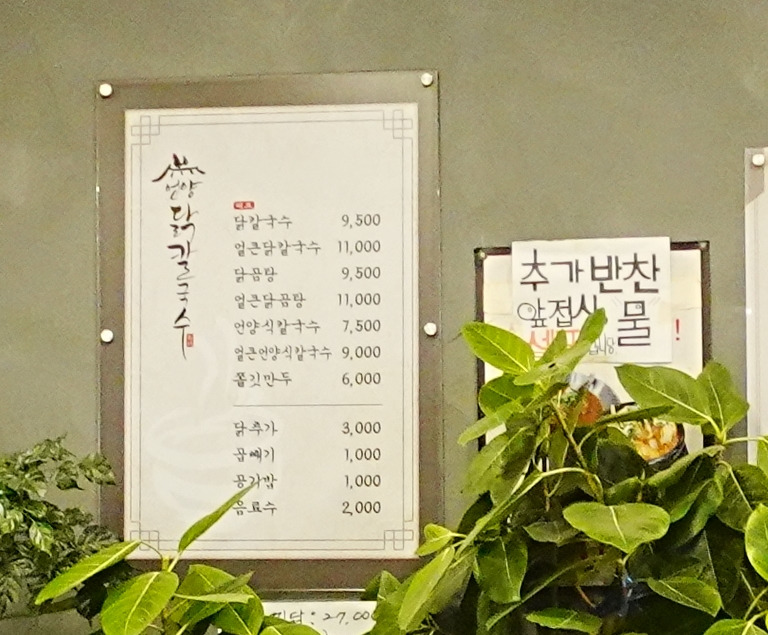 언양
닭칼국수
메뉴
닭칼국수 9,500
얼큰닭칼국수 11,000
닭곰탕 9,500
얼큰닭곰탕 11,000
언양식칼국수 7,500
얼큰언양식칼국수 9,000
쫄깃만두 6,000
닭추가 3,000
곱빼기 1,000
공기밥 1,000
음료수 2,000
추가반찬
앞접시 물
!
27,000